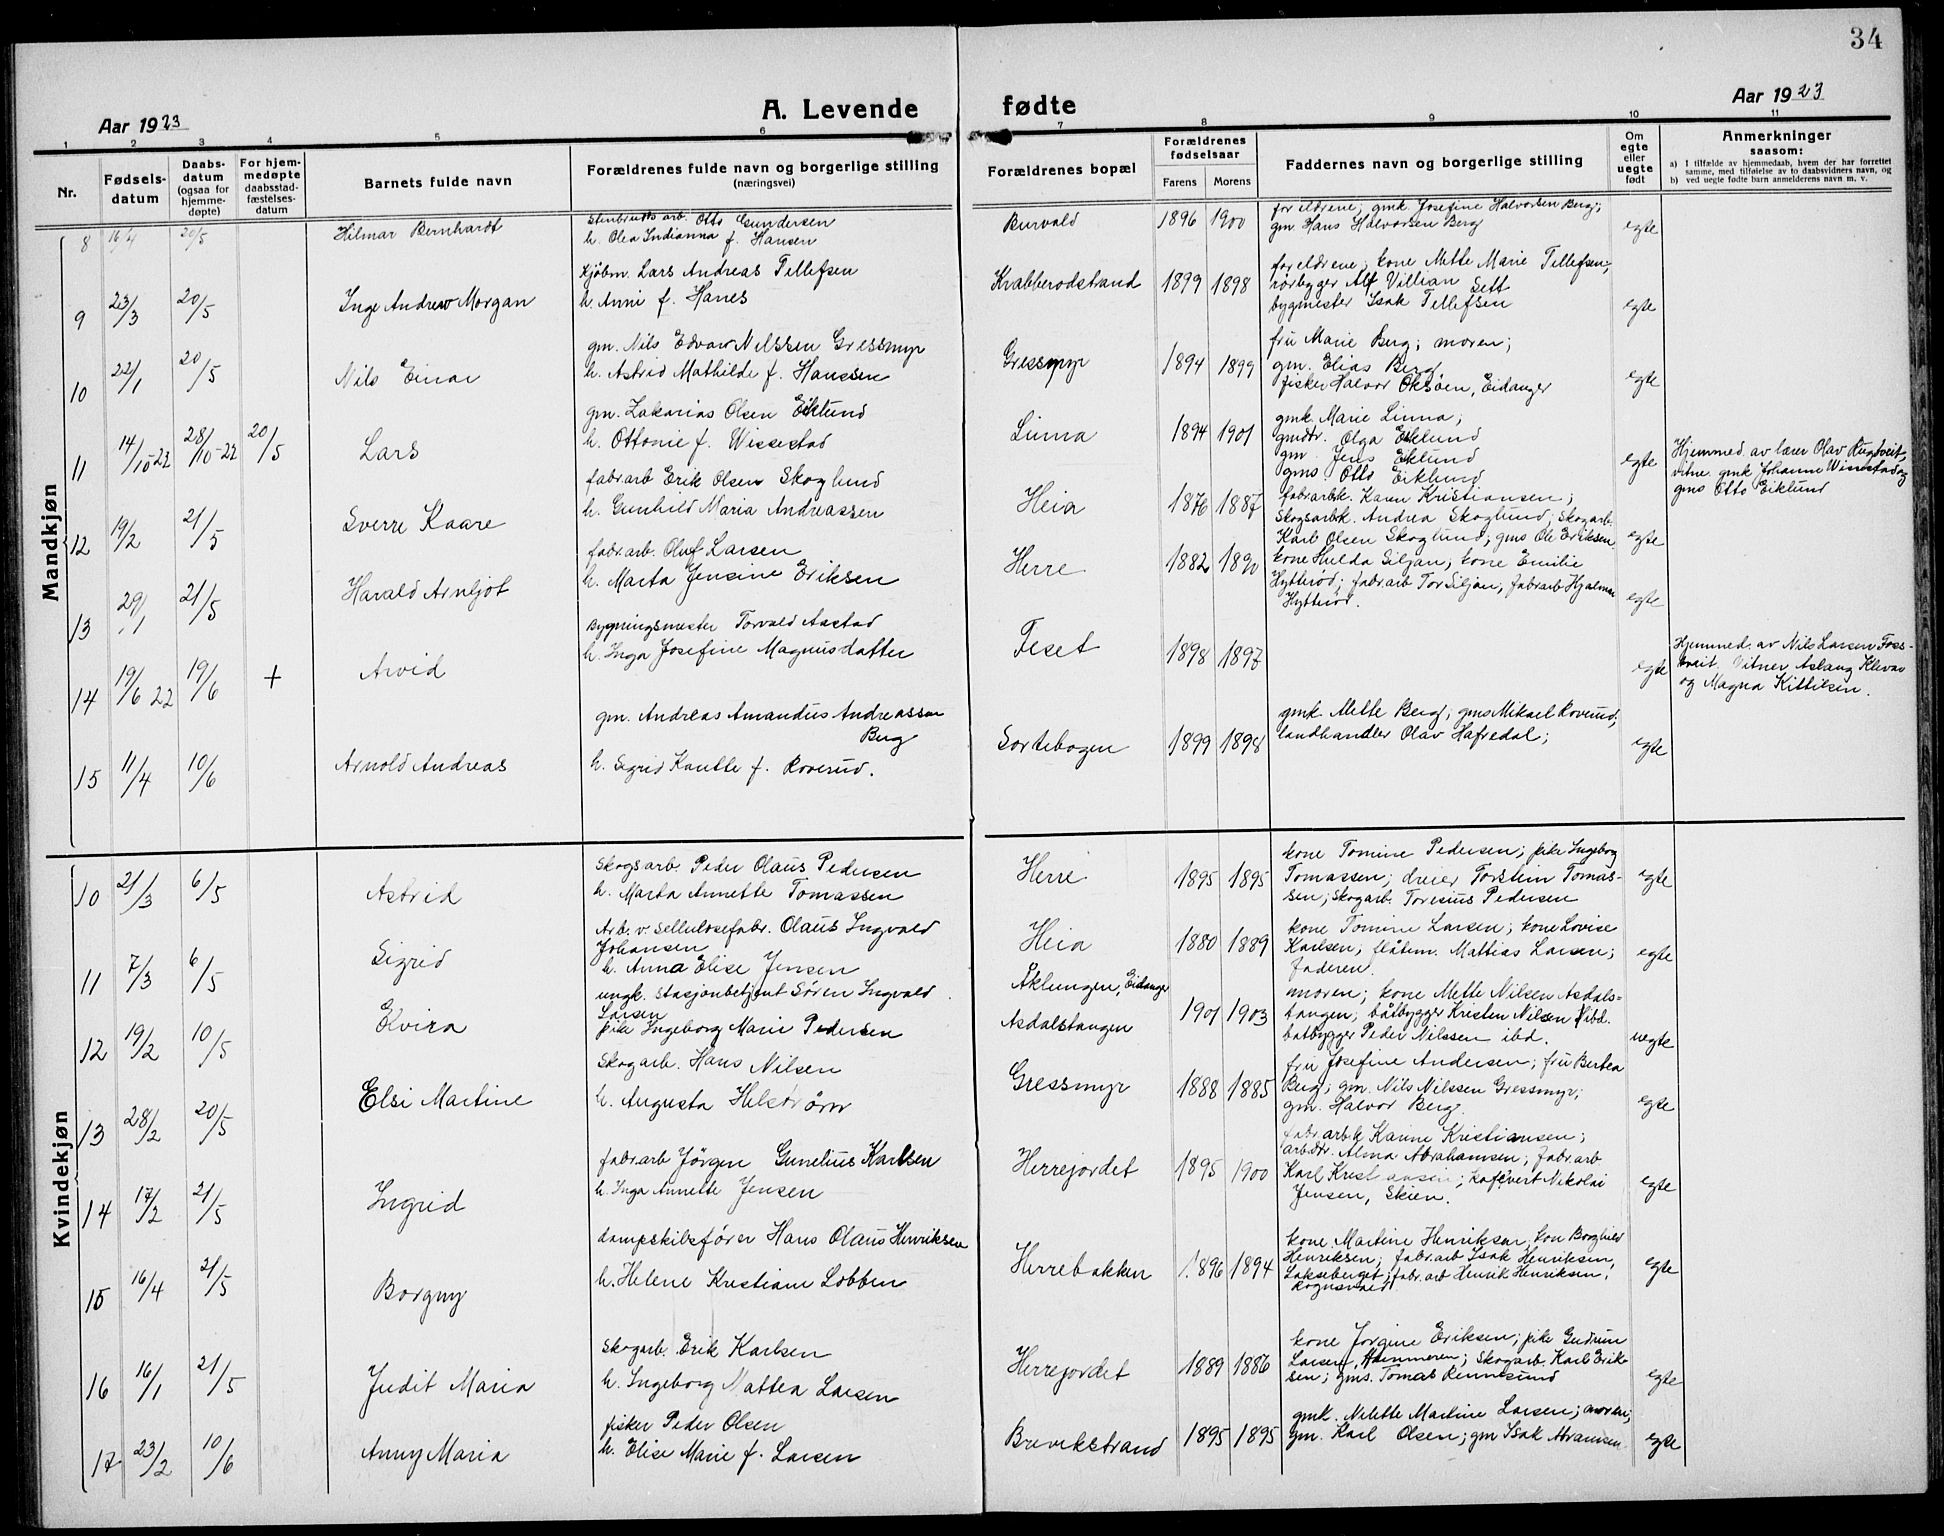 34
Aar 1923
A. Levende fødte
Aar 1923
1 2 3 4 5 6 7 8 9 10 11
Nr.
Fødsels-
datum
Daabs-
datum
(ogsaa for
hjemme-
døpte)
For hjem-
medøpte
daabsstad-
fæstelses-
datum
Barnets fulde navn
Forældrenes fulde navn og borgerlige stilling
(næringsvei)
Forældrenes bopæl
Forældrenes
fødselsaar
Farens Morens
Faddernes navn og borgerlige stilling
Om
egte
eller
uegte
født
Anmerkninger
saasom:
a) I tilfælde av hjemmedaab, hvem der har forrettet
samme, med tilføielse av to daabsvidners navn, og
b) ved uegte fødte barn anmelderens navn m. v.
Mandkjøn
8 16/4 20/5 Hilmar Bernhardt
Stenbrudts arb. Otto Gundersen
h. Olea Indianna f. Hansen
Burvald 1896 1900
foreldrene; gmk Josefine Halvorsen Berg;
gm. Hans Halvorsen Berg
egte
9 23/3 20/5 Inge Andrew Morgan
Kjøbm. Lars Andreas Tellefsen
h. Anni f. Hanes
Krabberødstrand 1899 1898
foreldrene; kone Mette Marie Tellefsen;
rørbygger Alf Villian Sett
bygmester Isak Tellefsen
egte
10 22/1 20/5 Nils Einar
gm. Nils Edvar Nilssen Gressmyr
h. Astrid Mathilde f. Hanssen
Gressmyr 1894 1899
fru Marie Berg; moren;
gm. Elias Berg
fisker Halvor Oksøen, Eidanger
egte
11 14/10-22 28/10-22 20/5 Lars
gm. Zakarias Olsen Eiklund
h. Ottonie f. Wissestad
Linna 1894 1901
gmk. Marie Linna;
gmdtr. Olga Eiklund
gm. Jens Eiklund
gms. Otto Eiklund
egte
Hjemmed. av lærer Olav Rugtveit,
vitne gmk Johanne Wissestad og
gms Otto Eiklund
12 19/2 21/5 Sverre Kaare
fabr.arb Erik Olsen Skoglund
h. Gunhild Maria Andreassen
Heia 1876 1887
fabr.arbk. Karen Kristiansen;
Skogsarbk. Andrea Skoglund; Skogarb.
Karl Olsen Skoglund; gms Ole Eriksen
egte
13 29/1 21/5 Harald Arnljot
fabr.arb. Oluf Larsen
h. Marta Jensine Eriksen
Herre 1882 1890
kone Hulda Siljan; kone Emilie
Hytterød; fabr.arb Tor Siljan; fabr.arb Hjalmar
Hytterød.
egte
14 19/6 22 19/6 + Arvid
Bygningsmester Torvald Aastad
h. Inga Josefine Magnusdatter
Feset 1898 1897
egte
Hjemmed. av Nils Larsen Foss-
tveit. Vitner Aslaug Klevas
og Magna Kittilsen.
15 11/4 10/6 Arnold Andreas
gm. Andreas Amandus Andreassen
Berg
h. Sigrid Kantte f. Roverud.
Sortebogen 1899 1898
gmk. Mette Berg; gms Mikael Roverud;
landhandler Olav Hafredal;
egte
Kvindekjøn
10 21/3 6/5 Astrid
Skogsarb. Peder Olaus Pedersen
h. Marta Annette Tomassen
Herre 1895 1895
kone Tomine Pedersen; pike Ingeborg
Tomassen; dreier Torstein Tomas-
sen; Skogarb. Toresius Pedersen
egte
11 7/3 6/5 Sigrid
Arb. v. Sellulosefabr. Olaus Ingvald
Johansen
h. Anna Elise Jensen
Heia 1880 1889
kone Tomine Larsen; kone Lovise
Karlsen; flåtem. Mattias Larsen;
faderen.
egte
12 19/2 10/5 Elvira
ungk. Stasjonbetjent Søren Ingvald
Larsen
pike Ingeborg Marie Pedersen
Åklungen, Eidanger
Asdalstangen 1901 1903
moren; kone Mette Nilsen Asdals-
tangen; båtbygger Kristen Nilsen ibd.
båtbygger Peder Nilssen ibd.
uegte
13 28/2 20/5 Elsi Martine
Skogarb. Hans Nilsen
h. Augusta Helström
Gressmyr 1888 1885
fru Josefine Andersen; fru Bertea
Berg; gm. Nils Nilssen Gressmyr;
gm. Halvor Berg.
egte
14 17/2 21/5 Ingrid
fabr.arb Jörgen Gunelius Karlsen
h. Inga Annette Jensen
Herrejordet 1895 1900
fabr.arb.k Kanne Kristiansen;
arbdtr. Alma Abrahamsen; fabr.arb
Karl Kristiansen; Kafévert Nikolai
Jensen, Skien.
egte
15 16/4 21/5 Borgny
dampskibsfører Hans Olaus Henriksen
h. Helene Kristiane Lobben
Herrebakken 1896 1894
kone Martine Henriksen; kone Borghild
Henriksen; fabr.arb Isak Henriksen,
Lakseberget; fabr.arb Henrik Henriksen,
Rognsvald.
egte
16 16/1 21/5 Judit Maria
Skogarb. Erik Karlsen
h. Ingeborg Mattea Larsen
Herrejordet 1889 1886
kone Jørgine Eriksen; pike Gudrun
Larsen, Hammeren; Skogarb. Karl Erik-
sen; gms. Tomas Rennesund
egte
17 23/2 10/6 Anny Maria
fisker Peder Olsen
h. Elise Marie f. Larsen
Brevikstrand 1895 1895
gmk. Nilette Martine Larsen; moren;
gm. Karl Olsen; gm Isak Abramsen
egte